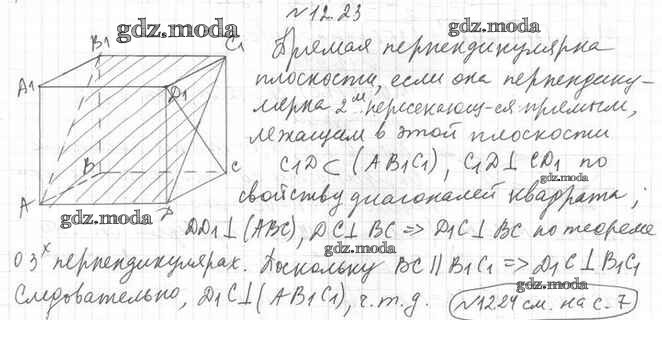 №12.23
gdz.moda
gdz.moda
B1
C1
Прямая перпендикулярна
плоскости, если она перпендику-
A1
D1
лярна 2ум пересекающ-ся прямым,
лежащим в этой плоскости
B
C
C1D⊂(AB1C1), C1D⊥CD1 по
gdz.moda
A
D
свойству диагоналей квадрата;
gdz.moda
DD1⊥(ABC), DC⊥BC => D1C⊥BC по теореме
gdz.moda
О 3х перпендикулярах. Поскольку BC∥B1C1 => D1C⊥B1C1
gdz.moda
Следовательно, D1C⊥(AB1C1), ч.т.д.
№1224 см. на с. 7